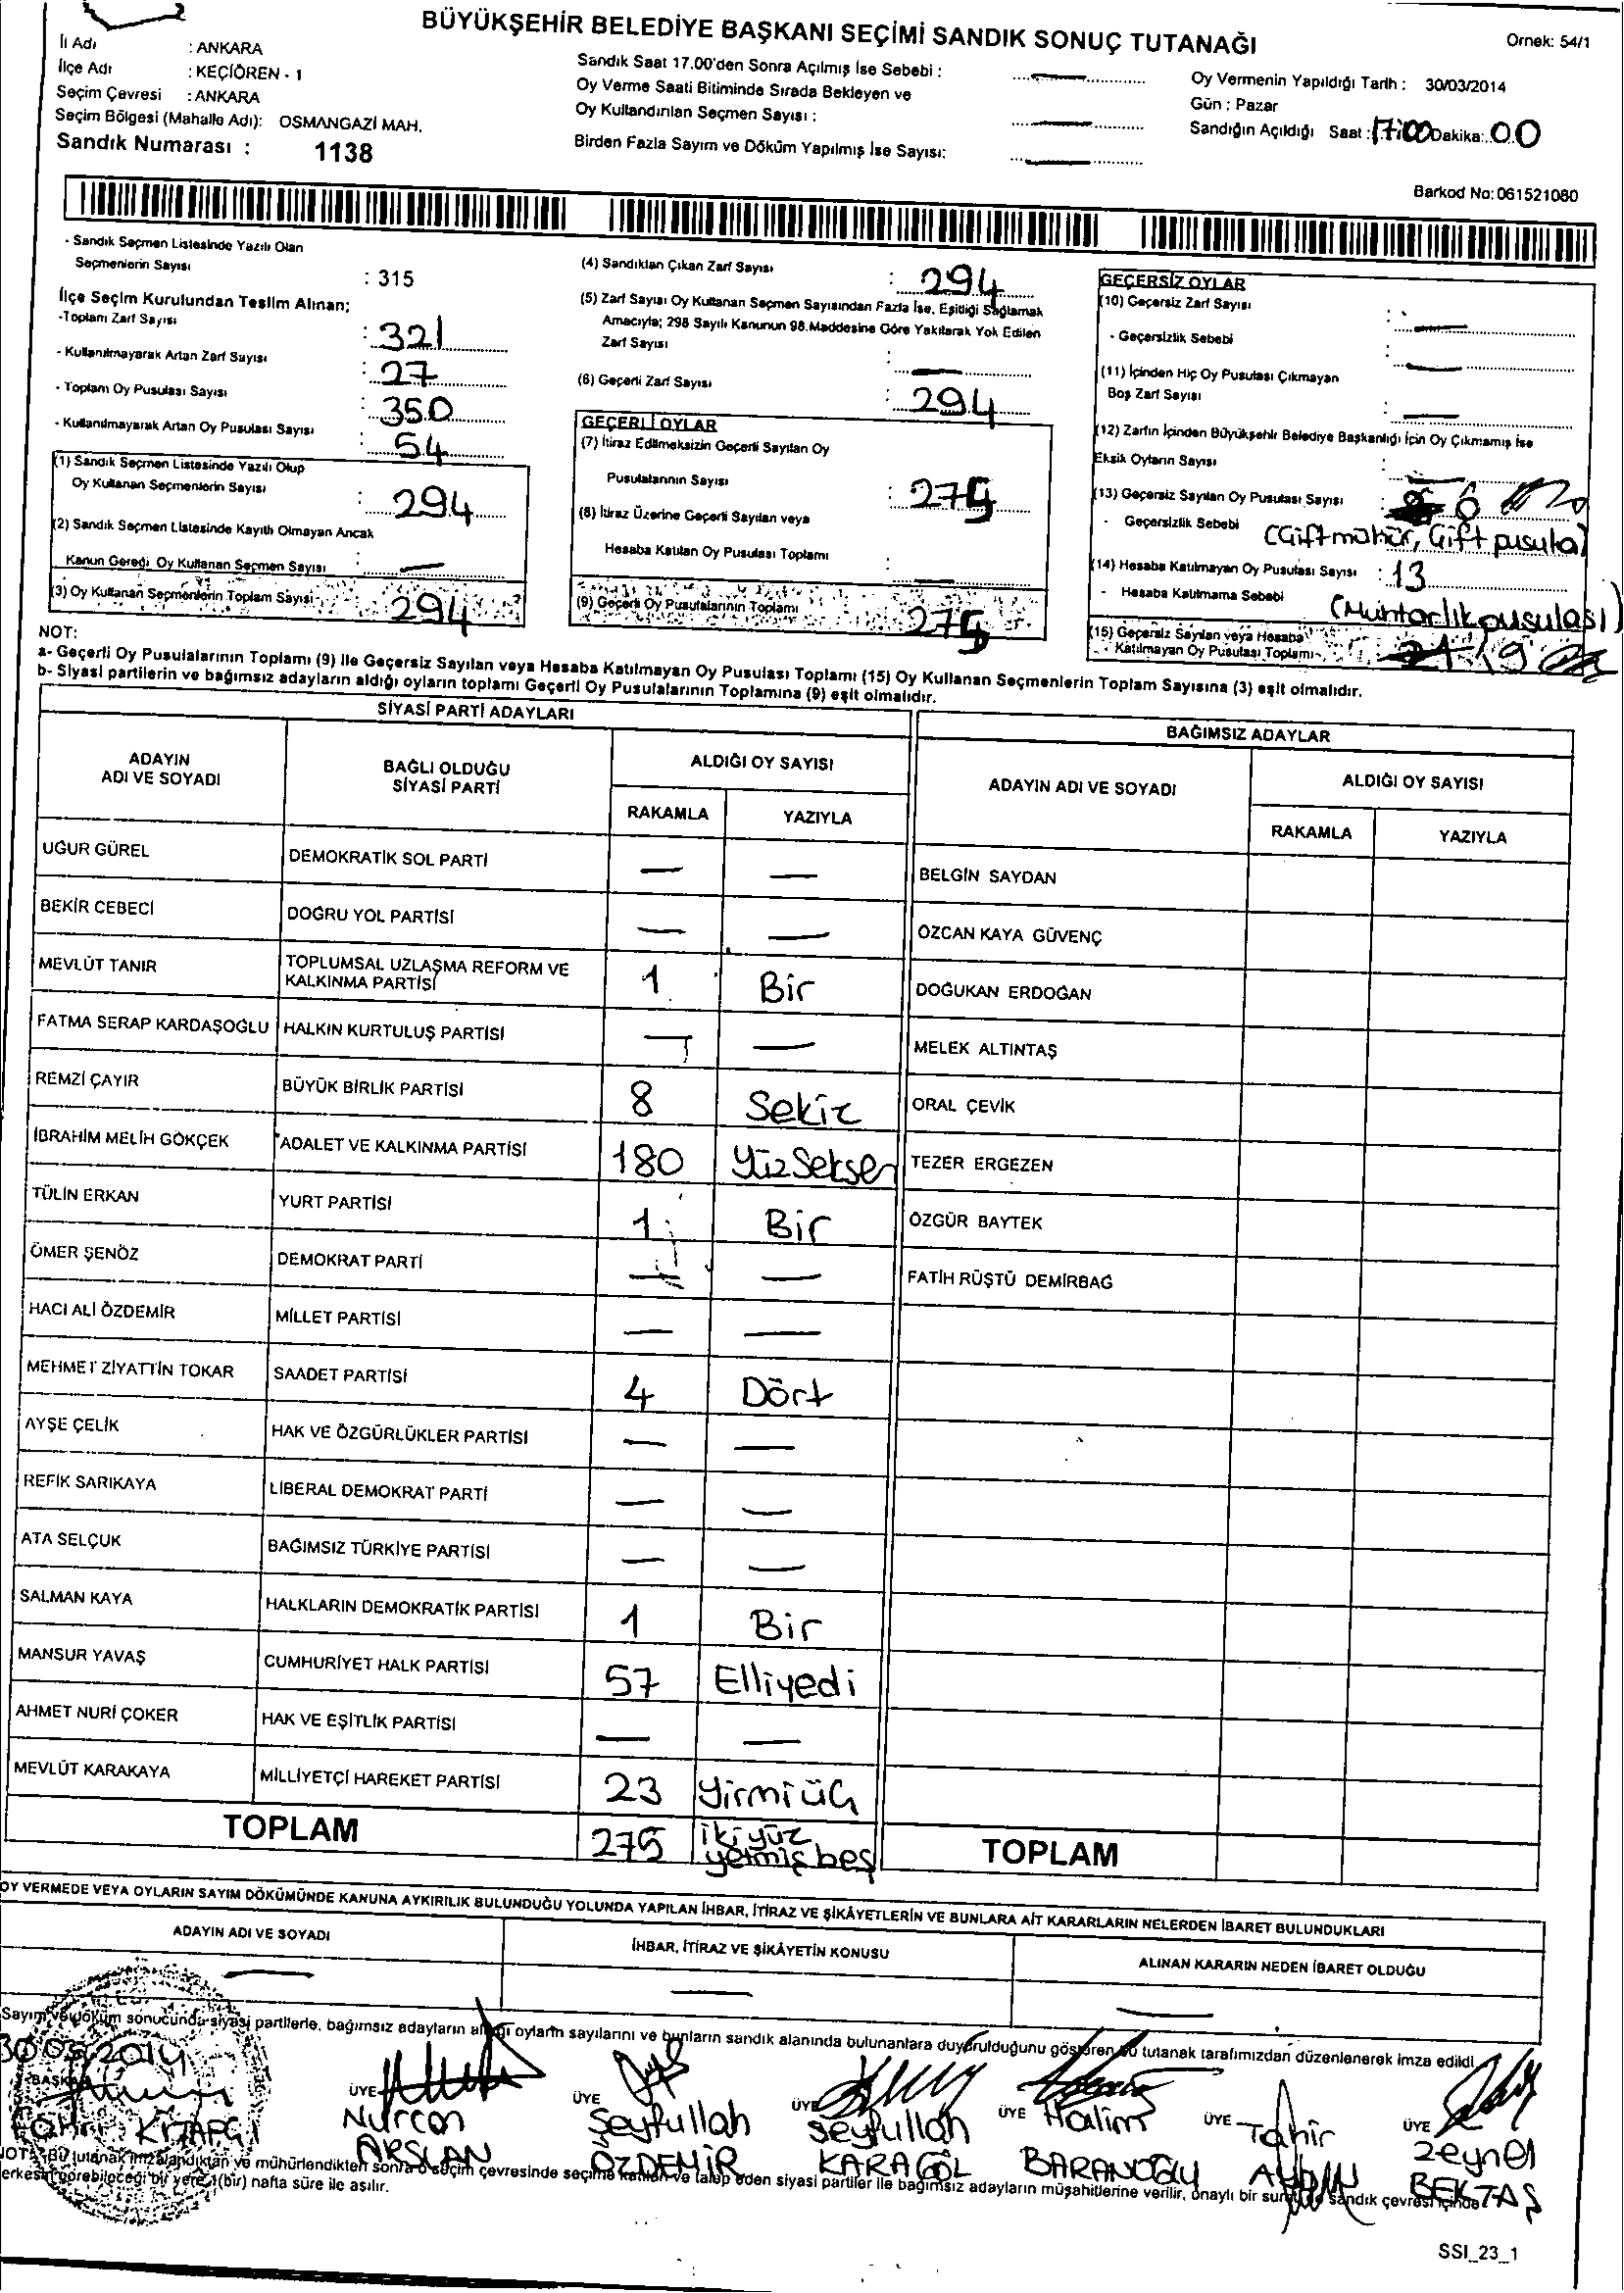 BÜYÜKŞEHİR BELEDİYE BAŞKANI SEÇİMİ SANDIK SONUÇ TUTANAĞI
Örnek: 54/1
İl Adı : ANKARA
İlçe Adı : KEÇİÖREN - 1
Seçim Çevresi : ANKARA
Seçim Bölgesi (Mahalle Adı): OSMANGAZİ MAH.
Sandık Numarası : 1138
Sandık Saat 17.00'den Sonra Açılmış İse Sebebi : —
Oy Verme Saati Bitiminde Sırada Bekleyen ve
Oy Kullandırılan Seçmen Sayısı : —
Birden Fazla Sayım ve Döküm Yapılmış İse Sayısı: —
Oy Vermenin Yapıldığı Tarih : 30/03/2014
Gün : Pazar
Sandığın Açıldığı Saat : 17:00 Dakika: 00
Barkod No: 061521080
- Sandık Seçmen Listesinde Yazılı Olan
Seçmenlerin Sayısı : 315
İlçe Seçim Kurulundan Teslim Alınan;
-Toplam Zarf Sayısı : 321
- Kullanılmayarak Artan Zarf Sayısı : 27
- Toplam Oy Pusulası Sayısı : 350
- Kullanılmayarak Artan Oy Pusulası Sayısı : 54
(1) Sandık Seçmen Listesinde Yazılı Olup
Oy Kullanan Seçmenlerin Sayısı : 294
(2) Sandık Seçmen Listesinde Kayıtlı Olmayan Ancak
Kanun Gereği Oy Kullanan Seçmen Sayısı : —
(3) Oy Kullanan Seçmenlerin Toplam Sayısı 294
(4) Sandıktan Çıkan Zarf Sayısı : 294
(5) Zarf Sayısı Oy Kullanan Seçmen Sayısından Fazla İse, Eşitliği Sağlamak
Amacıyla; 298 Sayılı Kanunun 98.Maddesine Göre Yakılarak Yok Edilen
Zarf Sayısı : —
(6) Geçerli Zarf Sayısı : 294
GEÇERLİ OYLAR
(7) İtiraz Edilmeksizin Geçerli Sayılan Oy
Pusulalarının Sayısı : 275
(8) İtiraz Üzerine Geçerli Sayılan veya
Hesaba Katılan Oy Pusulası Toplamı : —
(9) Geçerli Oy Pusulalarının Toplamı 275
GEÇERSİZ OYLAR
(10) Geçersiz Zarf Sayısı : —
- Geçersizlik Sebebi : —
(11) İçinden Hiç Oy Pusulası Çıkmayan
Boş Zarf Sayısı : —
(12) Zarfın İçinden Büyükşehir Belediye Başkanlığı İçin Oy Çıkmamış İse
Eksik Oyların Sayısı : —
(13) Geçersiz Sayılan Oy Pusulası Sayısı : 6
- Geçersizlik Sebebi (Çift mühür, Çift pusula)
(14) Hesaba Katılmayan Oy Pusulası Sayısı : 13
- Hesaba Katılmama Sebebi (Muhtarlık pusulası)
(15) Geçersiz Sayılan veya Hesaba
Katılmayan Oy Pusulası Toplamı 19
NOT:
a- Geçerli Oy Pusulalarının Toplamı (9) ile Geçersiz Sayılan veya Hesaba Katılmayan Oy Pusulası Toplamı (15) Oy Kullanan Seçmenlerin Toplam Sayısına (3) eşit olmalıdır.
b- Siyasi partilerin ve bağımsız adayların aldığı oyların toplamı Geçerli Oy Pusulalarının Toplamına (9) eşit olmalıdır.
SİYASİ PARTİ ADAYLARI
ADAYIN ADI VE SOYADI BAĞLI OLDUĞU SİYASİ PARTİ ALDIĞI OY SAYISI
RAKAMLA YAZIYLA
UĞUR GÜREL DEMOKRATİK SOL PARTİ — —
BEKİR CEBECİ DOĞRU YOL PARTİSİ — —
MEVLÜT TANIR TOPLUMSAL UZLAŞMA REFORM VE KALKINMA PARTİSİ 1 Bir
FATMA SERAP KARDAŞOĞLU HALKIN KURTULUŞ PARTİSİ — —
REMZİ ÇAYIR BÜYÜK BİRLİK PARTİSİ 8 Sekiz
İBRAHİM MELİH GÖKÇEK ADALET VE KALKINMA PARTİSİ 180 Yüzseksen
TÜLİN ERKAN YURT PARTİSİ 1 Bir
ÖMER ŞENÖZ DEMOKRAT PARTİ — —
HACI ALİ ÖZDEMİR MİLLET PARTİSİ — —
MEHMET ZİYATTİN TOKAR SAADET PARTİSİ 4 Dört
AYŞE ÇELİK HAK VE ÖZGÜRLÜKLER PARTİSİ — —
REFİK SARIKAYA LİBERAL DEMOKRAT PARTİ — —
ATA SELÇUK BAĞIMSIZ TÜRKİYE PARTİSİ — —
SALMAN KAYA HALKLARIN DEMOKRATİK PARTİSİ 1 Bir
MANSUR YAVAŞ CUMHURİYET HALK PARTİSİ 57 Elliyedi
AHMET NURİ ÇOKER HAK VE EŞİTLİK PARTİSİ — —
MEVLÜT KARAKAYA MİLLİYETÇİ HAREKET PARTİSİ 23 Yirmiüç
TOPLAM 275 İkiyüz yetmişbeş
BAĞIMSIZ ADAYLAR
ADAYIN ADI VE SOYADI ALDIĞI OY SAYISI
RAKAMLA YAZIYLA
BELGİN SAYDAN
ÖZCAN KAYA GÜVENÇ
DOĞUKAN ERDOĞAN
MELEK ALTINTAŞ
ORAL ÇEVİK
TEZER ERGEZEN
ÖZGÜR BAYTEK
FATİH RÜŞTÜ DEMİRBAĞ
TOPLAM
OY VERMEDE VEYA OYLARIN SAYIM DÖKÜMÜNDE KANUNA AYKIRILIK BULUNDUĞU YOLUNDA YAPILAN İHBAR, İTİRAZ VE ŞİKÂYETLERİN VE BUNLARA AİT KARARLARIN NELERDEN İBARET BULUNDUKLARI
ADAYIN ADI VE SOYADI İHBAR, İTİRAZ VE ŞİKÂYETİN KONUSU ALINAN KARARIN NEDEN İBARET OLDUĞU
— — —
Sayım ve döküm sonucunda siyasi partilerle, bağımsız adayların aldığı oyların sayılarını ve bunların sandık alanında bulunanlara duyurulduğunu gösteren bu tutanak tarafımızdan düzenlenerek imza edildi
30.03.2014
BAŞKAN ÜYE ÜYE ÜYE ÜYE ÜYE ÜYE
KİTAPÇI
Nurcan ARSLAN
Seyfullah ÖZDEMİR
Seyfullah KARAGÖL
Halim BARANOĞLU
Tahir AYDIN
Zeynel BEKTAŞ
NOT: Bu tutanak imzalandıktan ve mühürlendikten sonra o seçim çevresinde seçime katılan ve talep eden siyasi partiler ile bağımsız adayların müşahitlerine verilir, onaylı bir sureti de sandık çevresi içinde
herkesin görebileceği bir yere 1(bir) hafta süre ile asılır.
SSI_23_1